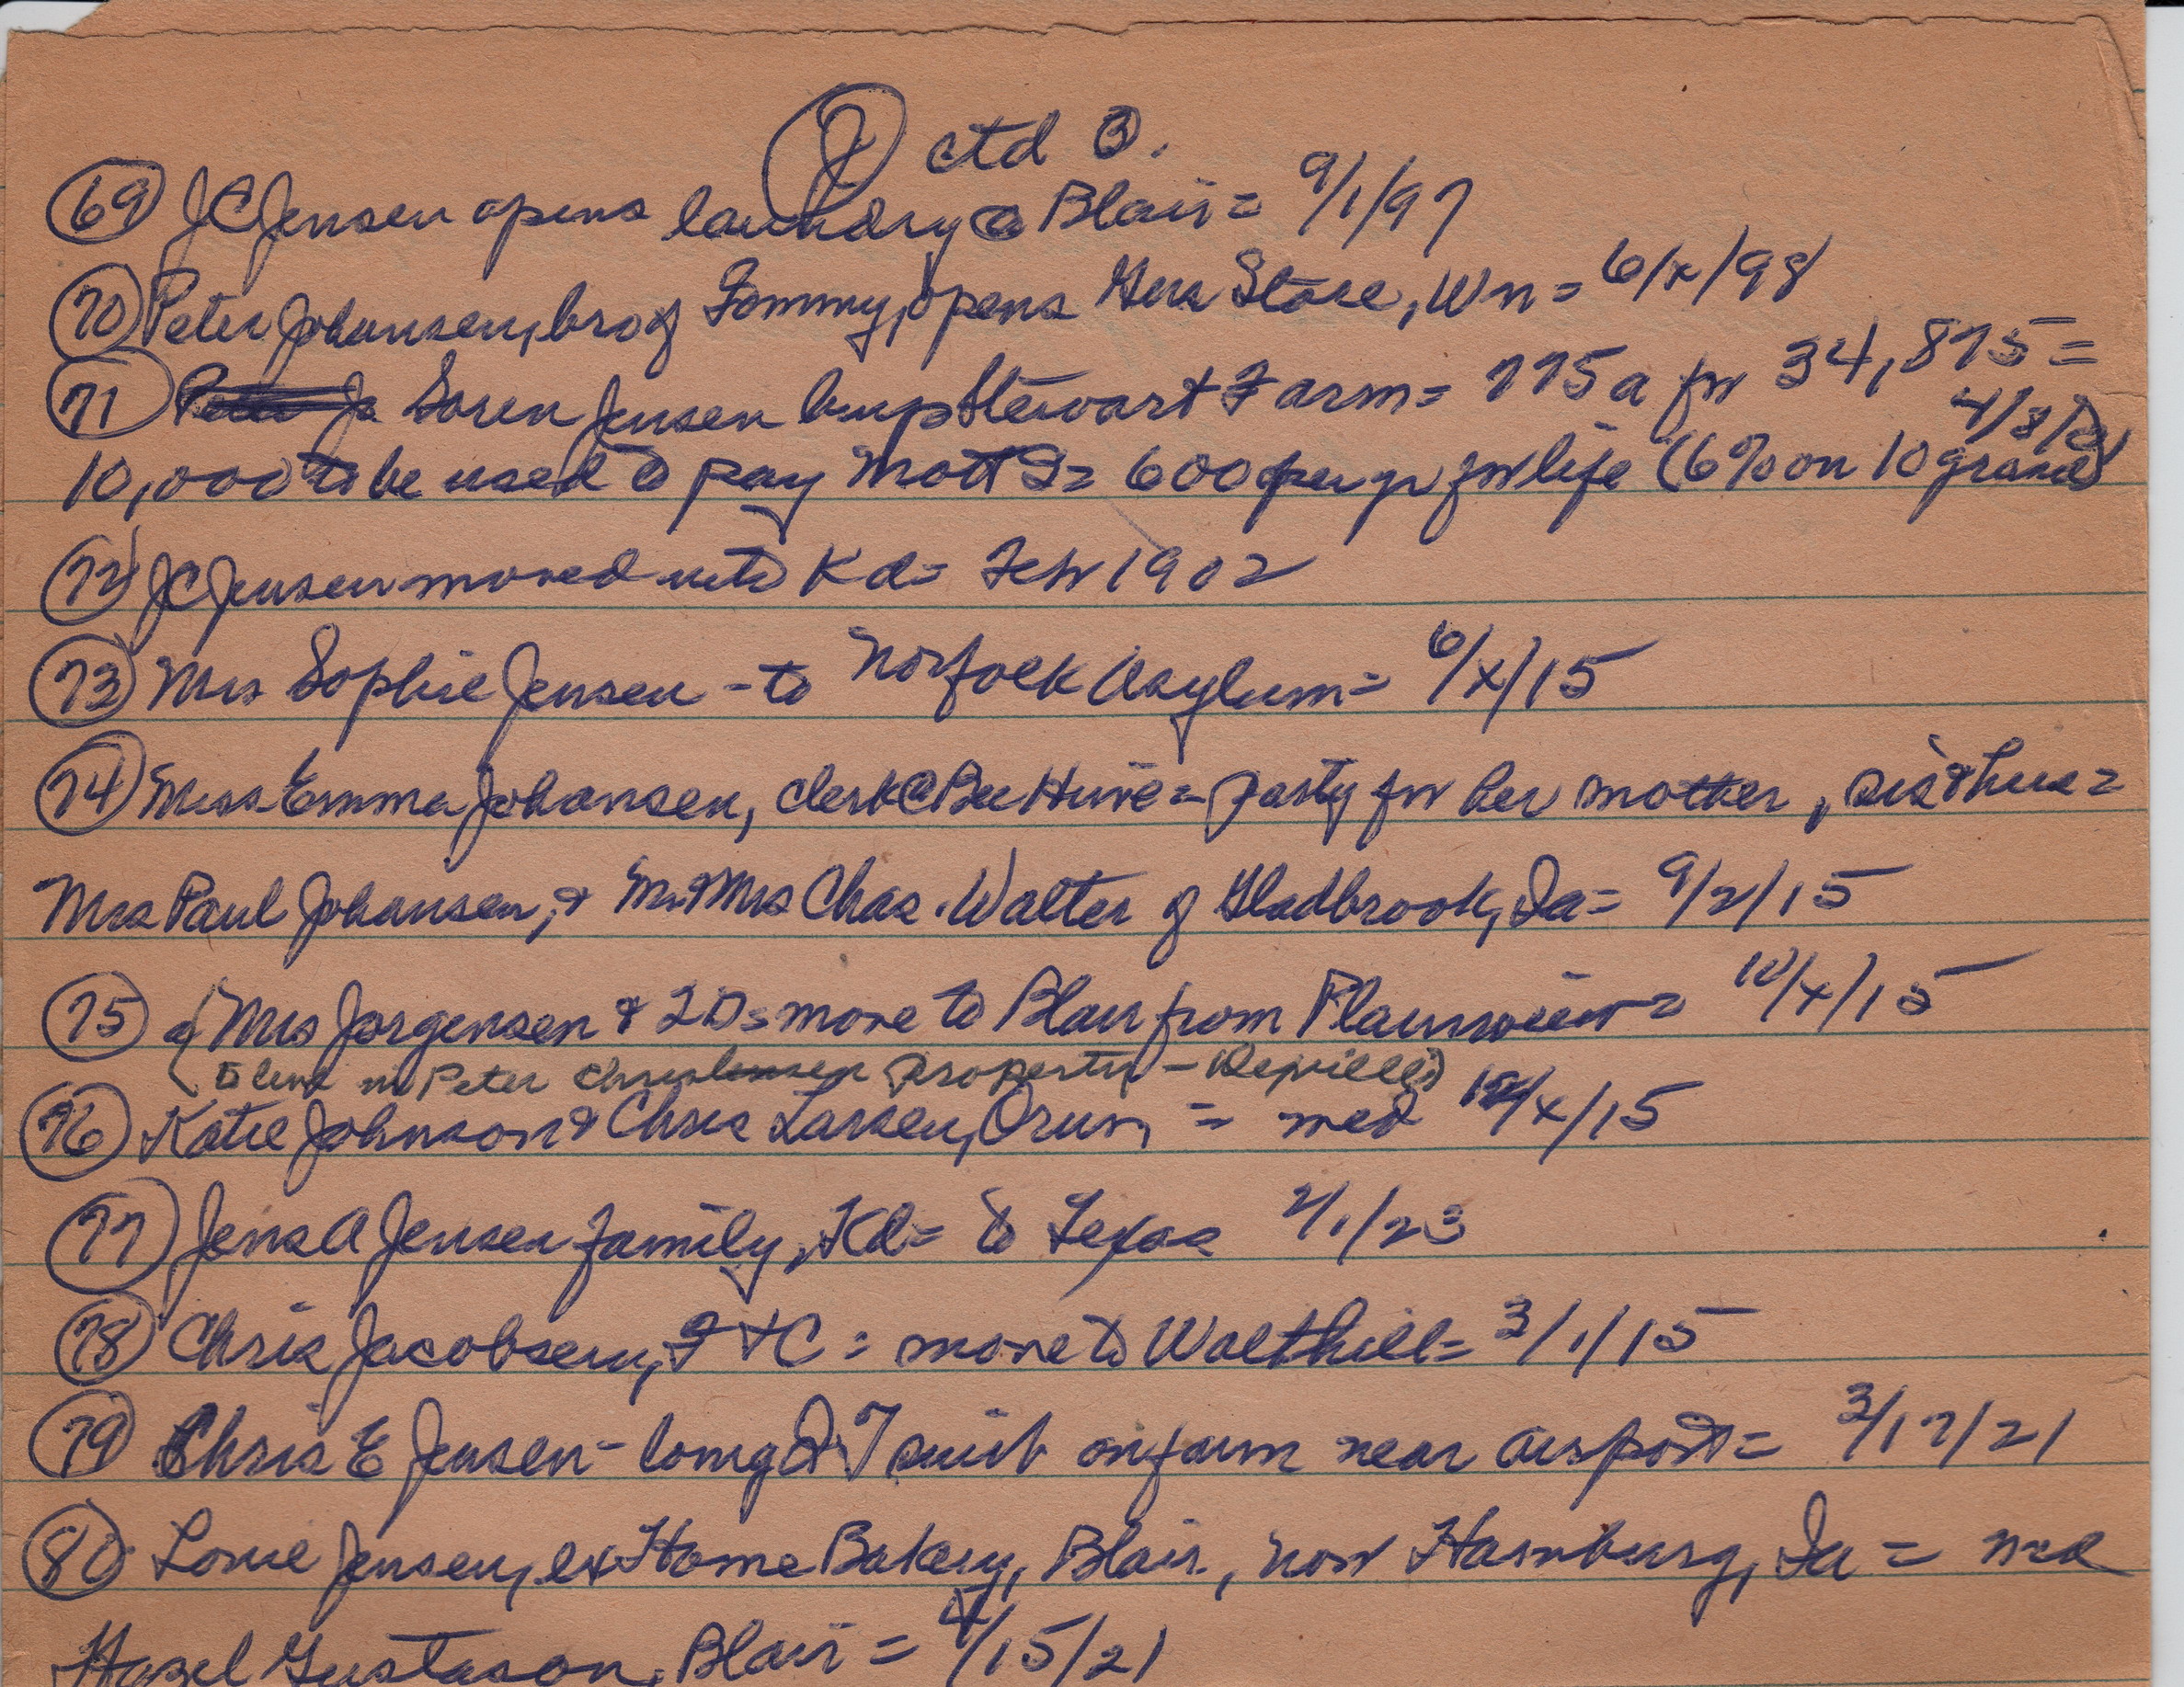 (J) ctd ③.
(69) JC Jensen opens laundry @ Blair = 9/1/97
(70) Peter Johansen, bro of Tommy, opens Gen Store, Wn = 6/x/98
(71) Soren Jensen buys Stewart Farm = 775a for 34,875 =
4/8/21
10,000 to be used to pay Mott S = 600 per yr for life (6% on 10 grand)
(72) JC Jensen moved into Kd = Feb 1902
(73) Mrs Sophie Jensen - to Norfolk Asylum = 6/x/15
(74) Miss Emma Johansen, clerk @ Bee Hive = party for her mother, sis & hus =
Mrs Paul Johansen, & Mr & Mrs Chas. Walter of Gladbrook, Ia = 9/2/15
(75) Mrs Jorgensen & 2 Ds move to Blair from Plainview = 10/x/15
to live in Peter Christensen property -
(76) Katie Johnson & Chris Larsen, Orum, = med 12/x/15
(77) Jens A Jensen family, Kd = to Texas 2/1/23
(78) Chris Jacobsen, F + C = move to Walthill = 3/1/15
(79) Chris E Jensen - long on farm near airport = 3/17/21
(80) Louie Jensen, ex Home Bakery, Blair, now Hamburg, Ia = med
Hazel Gustason, Blair = 4/15/21